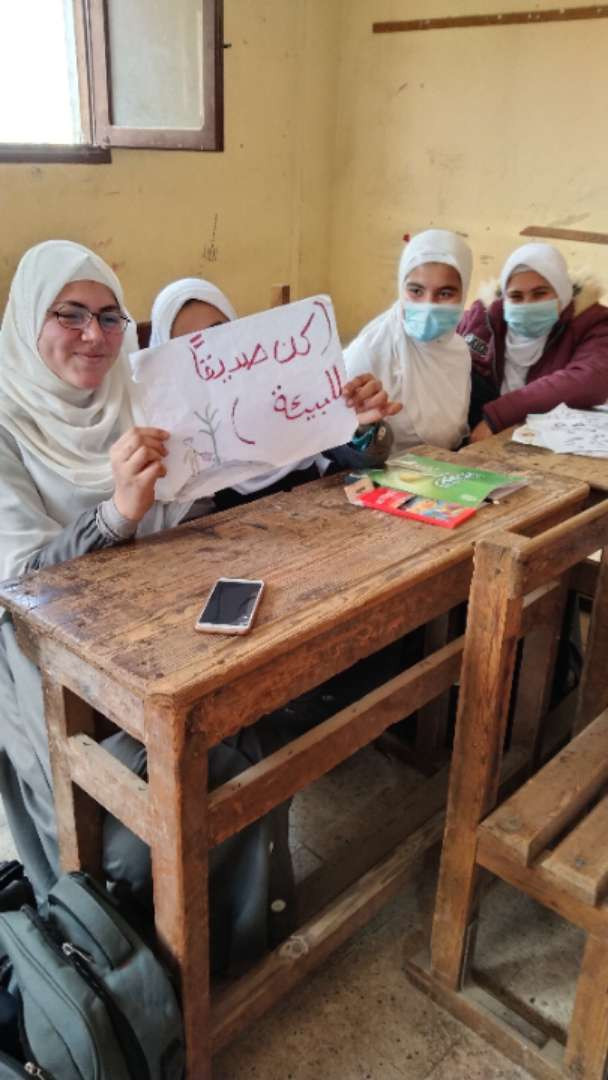 (كن صديقاً
للبيئة)